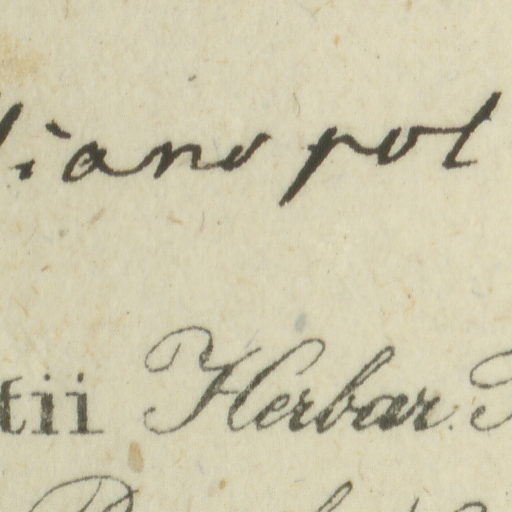 lianopol
tii Herbar.